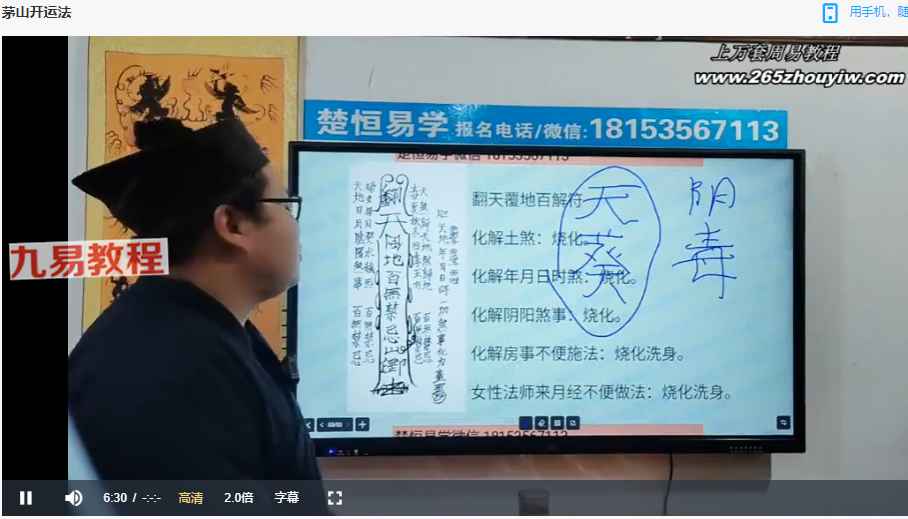 茅山开运法
用手机、随
上万套周易教程
www.265zhouyiw.com
楚恒易学 报名电话/微信:18153567113
楚恒易学微信 18153567113
九易教程
翻天覆地百解符
化解土煞：烧化。
化解年月日时煞：烧化。
化解阴阳煞事：烧化。
化解房事不便施法：烧化洗身。
女性法师来月经不便做法：烧化洗身。
天葵
阴毒
百无禁忌
百无禁忌
楚恒易学微信 18153567113
6:30 / -:-:-
高清
2.0倍
字幕